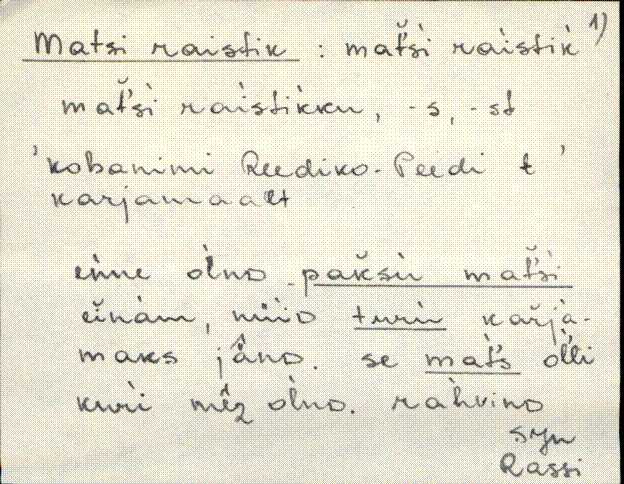 Matsi raistik : mat̆'si raistik̀ 1)
mat̆'si raistikku, -s, -st
'kohanimi Reediko-Peedi t'
karjamaalt
enne oĺno paksu mat̆'si
einam, nüio turu karja-
maks jâno. se mat's oĺli
kuri mêz oĺno. rahvino
syn
Rassi